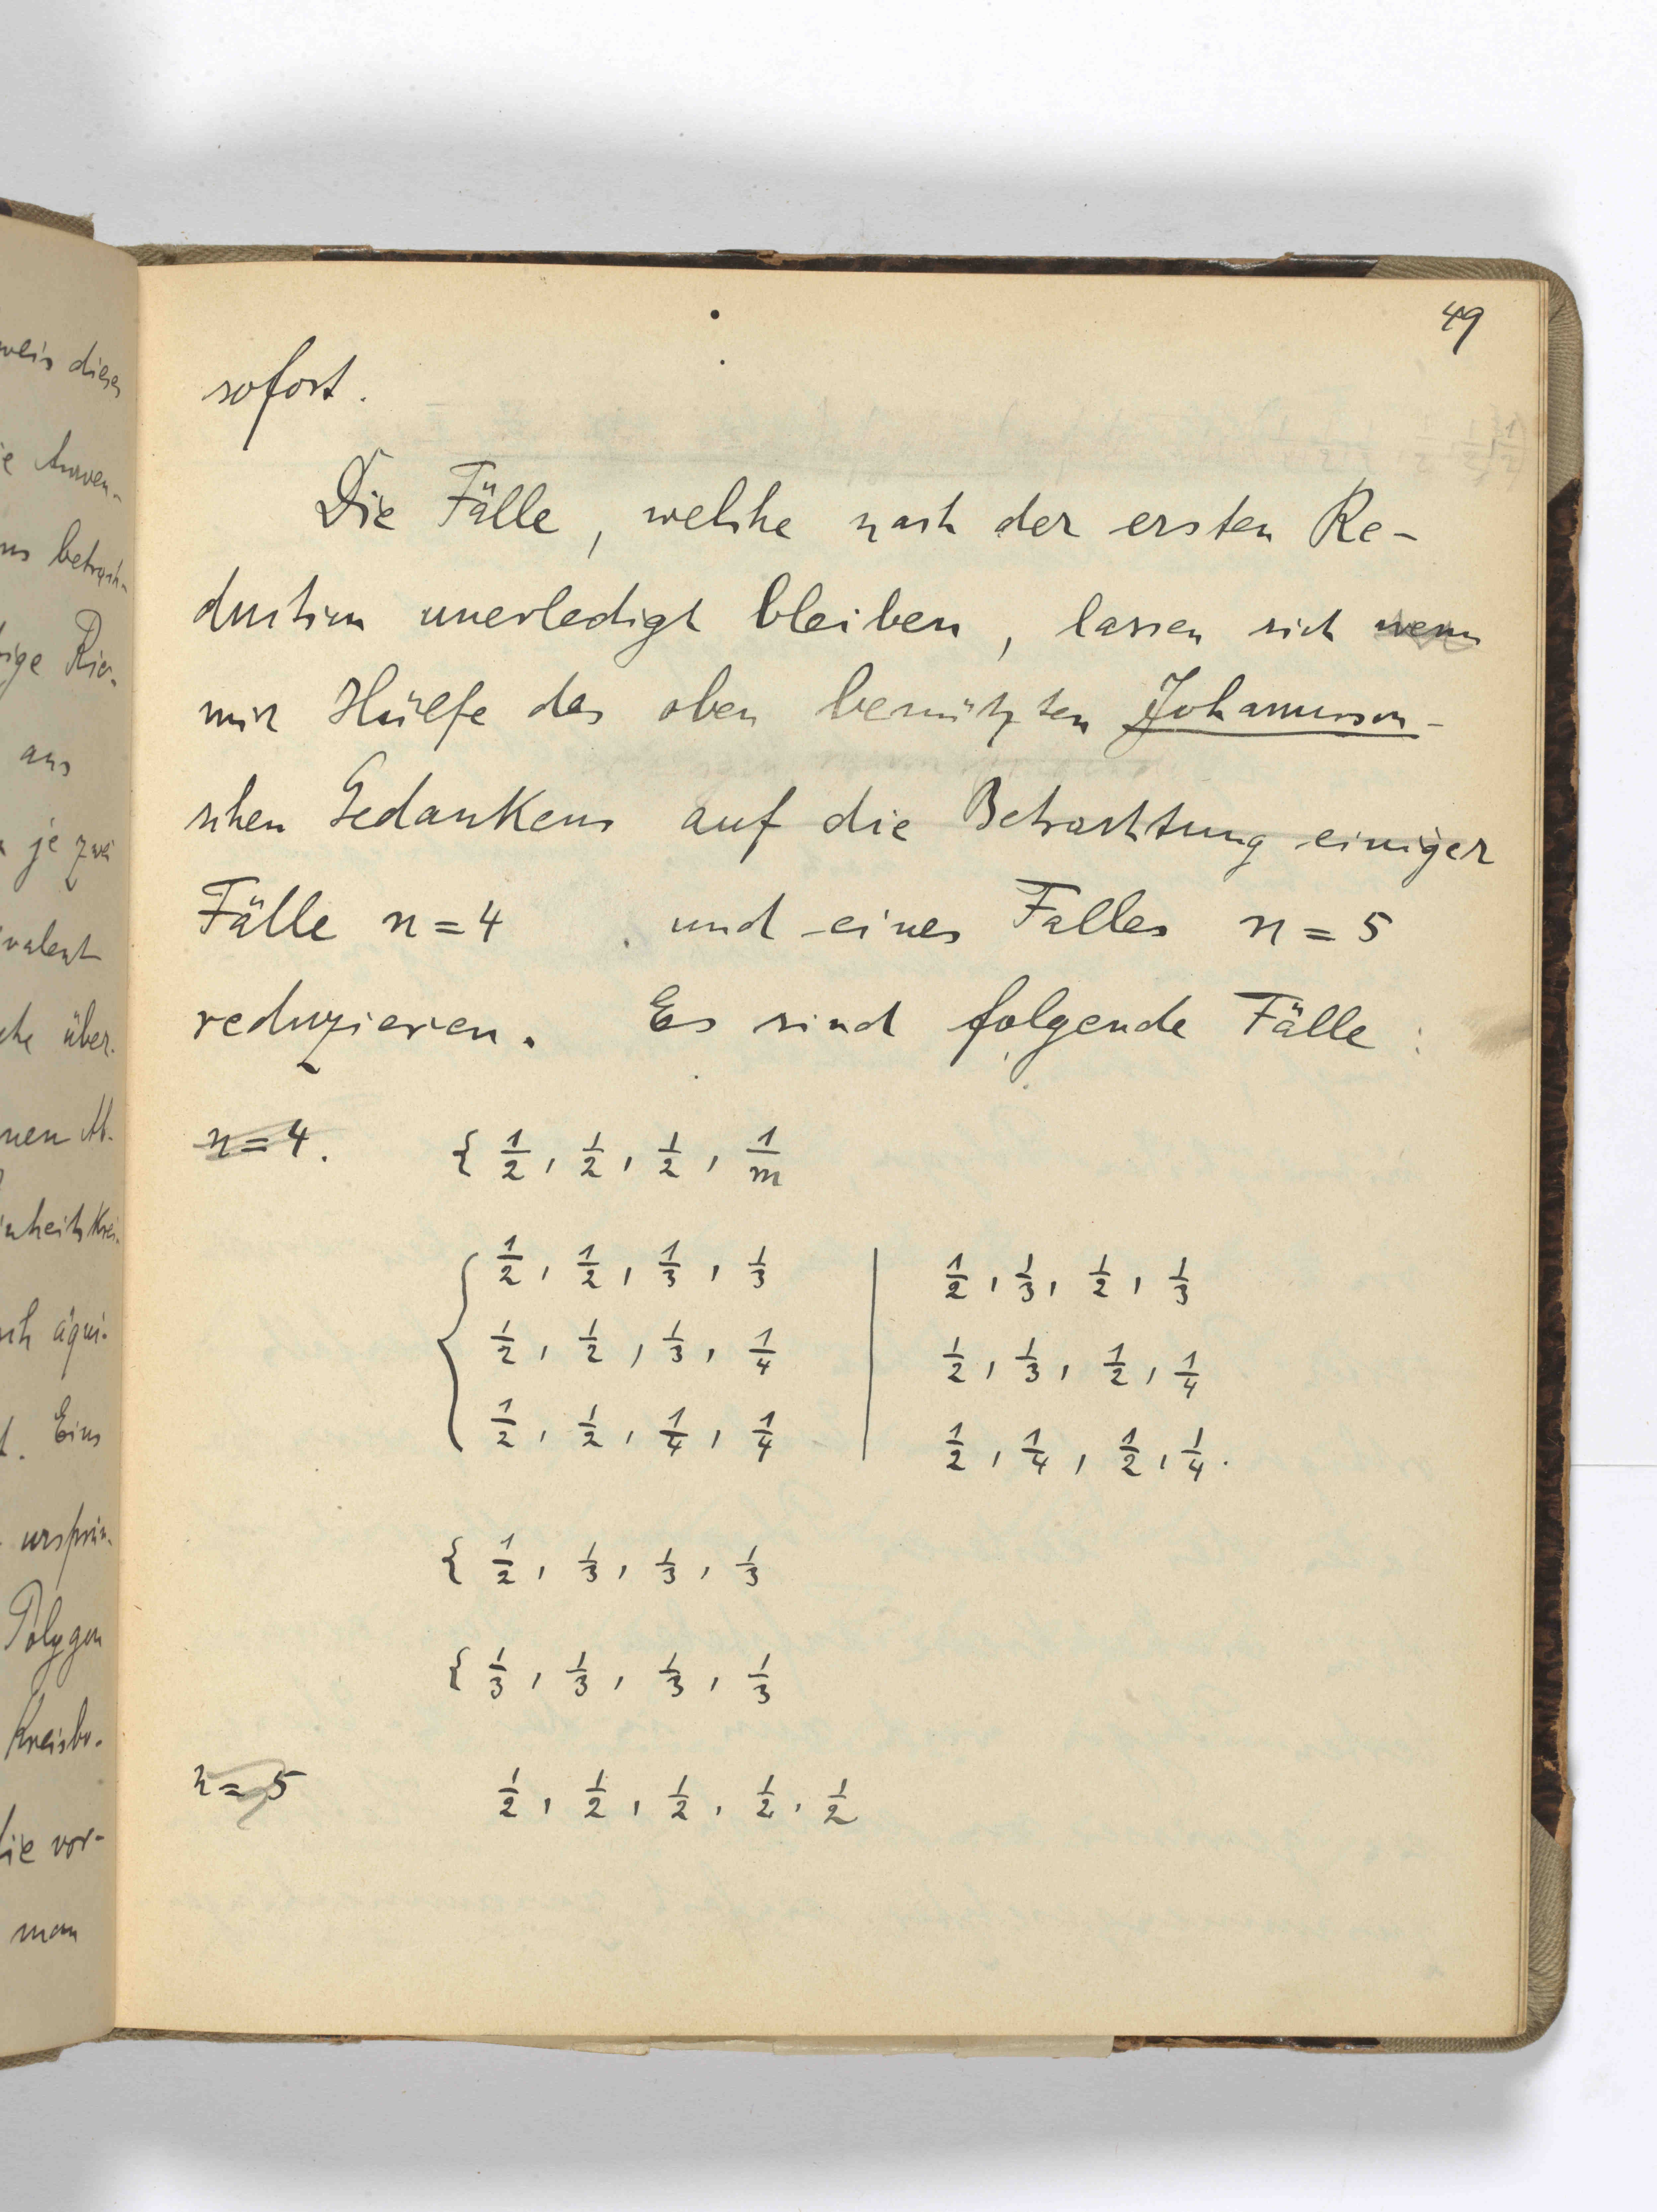 weis dieses
e Anwen-
ns betrach-
tige Rie-
aus
n je zwei
ivalent
che über-
nen Ab-
inheitskrei-
sch äqui-
t. Eins
ursprün-
Polygon
Kreisbo-
die vor-
man
49
sofort.
Die Fälle, welche nach der ersten Re-
duktion unerledigt bleiben, lassen sich wenn
mit Hülfe des oben benützten Johansson-
schen Gedankens auf die Betrachtung einiger
Fälle n = 4 und eines Falles n = 5
reduzieren. Es sind folgende Fälle:
n = 4. { 1/2, 1/2, 1/2, 1/m
{ 1/2, 1/2, 1/3, 1/3 | 1/2, 1/3, 1/2, 1/3
1/2, 1/2, 1/3, 1/4 | 1/2, 1/3, 1/2, 1/4
1/2, 1/2, 1/4, 1/4 | 1/2, 1/4, 1/2, 1/4.
{ 1/2, 1/3, 1/3, 1/3
{ 1/3, 1/3, 1/3, 1/3
n = 5 1/2, 1/2, 1/2, 1/2, 1/2